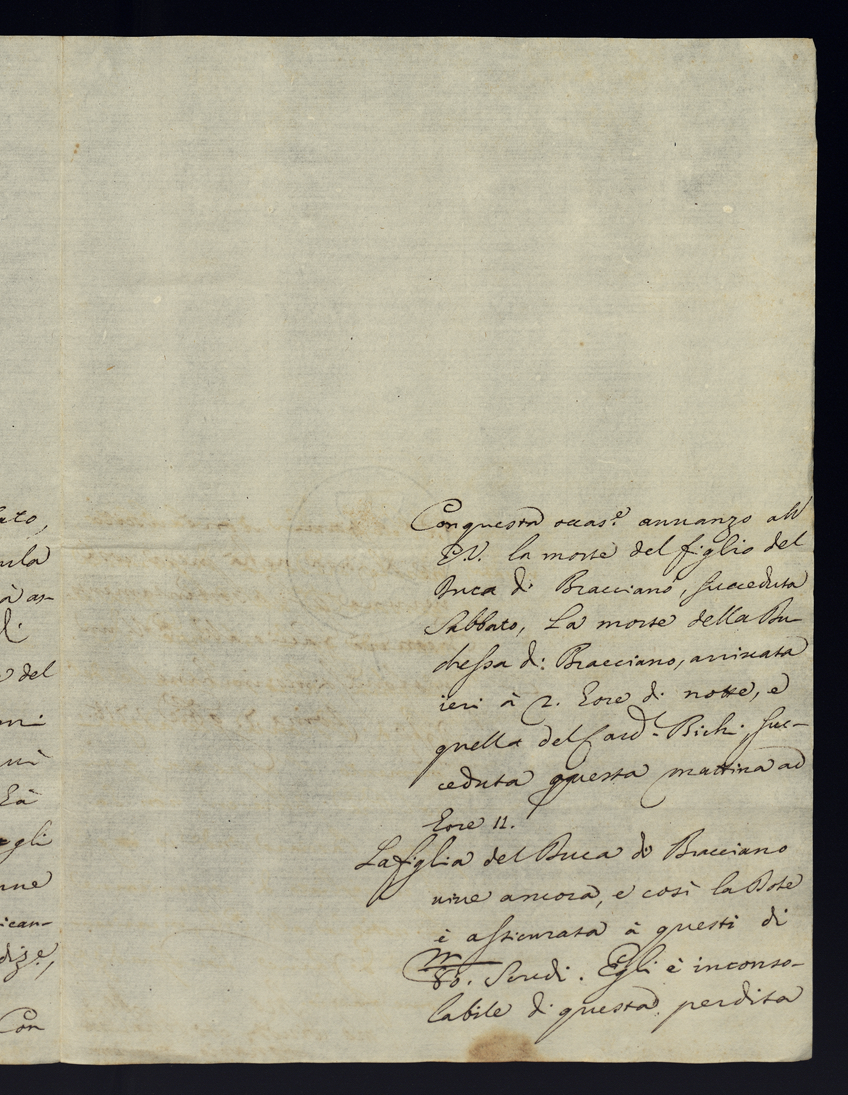 ato,
del
gli
Con
Con questa occas.e annunzo all'
E.V. la morte del figlio del
Duca di Bracciano, succeduta
Sabbato, La morte della Du-
chessa di: Bracciano, arrivata
ieri à 2. Eore di notte, e
quella del Card.l Bichi suc-
ceduta questa mattina ad
Eore 11.
La figlia del Duca di Bracciano
vive ancora, e così la Dote
è assicurata à questi di
m/80. Scudi. Egli è inconso-
labile di questa perdita